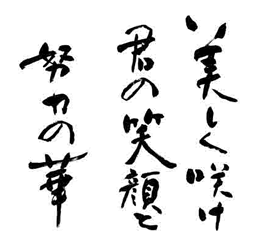 美しく咲け
君の笑顔と
努力の華